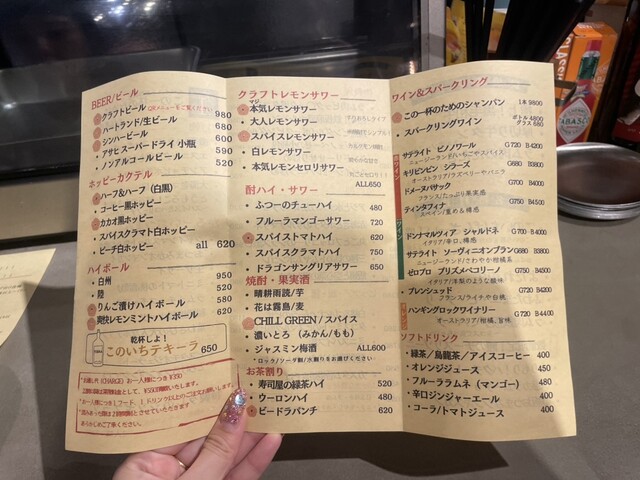 BEER/ビール
クラフトビール QRメニューをご覧ください 980
ハートランド/生ビール 680
シンハービール 600
アサヒスーパードライ 小瓶 590
ノンアルコールビール 520
ホッピーカクテル
ハーフ&ハーフ（白黒）
コーヒー黒ホッピー
カカオ黒ホッピー
スパイスクラマト白ホッピー
ピーチ白ホッピー all 620
ハイボール
白州 950
陸 520
りんご漬けハイボール 580
爽快レモンミントハイボール 620
乾杯しよ!
このいちテキーラ 650
クラフトレモンサワー
マジ
本気レモンサワー
大人レモンサワー
スパイスレモンサワー
白レモンサワー
本気レモンセロリサワー
ALL650
酎ハイ・サワー
ふつーのチューハイ 480
フルーラマンゴーサワー 720
スパイストマトハイ 620
スパイスクラマトハイ 750
ドラゴンサングリアサワー 650
焼酎・果実酒
晴耕雨読/芋
花は霧島/麦
CHILL GREEN / スパイス
濃いとろ（みかん/もも）
ジャスミン梅酒 ALL600
お茶割り
寿司屋の緑茶ハイ 520
ウーロンハイ 480
ビードラパンチ 620
ワイン&スパークリング
この一杯のためのシャンパン 1本 9800
スパークリングワイン ボトル 4800
グラス 880
サテライト ピノノワール G720 B4200
ニュージーランド/いちごやスパイス
キリビンビン シラーズ G680 B3800
オーストラリア/ラズベリーやバニラ
ドメーヌバサック G700 B4000
フランス/たっぷり果実感
ティンタフィナ G750 B4500
スペイン/重める樽感
ドンナマルツィア シャルドネ G700 B4000
イタリア/辛口、樽感
サテライト ソーヴィニオンブラン G680 B3800
ニュージーランド/さわやか柑橘系
ゼロプロ プリズメペコリーノ G750 B4500
イタリア/洋梨のような酸味
ブレンシュッド G720 B4200
フランス/ライチや白桃
ハンギングロックワイナリー
オーストラリア/柑橘、旨味
ソフトドリンク
緑茶/烏龍茶/アイスコーヒー 400
オレンジジュース 450
フルーララムネ（マンゴー） 480
辛口ジンジャーエール 400
コーラ/トマトジュース 400